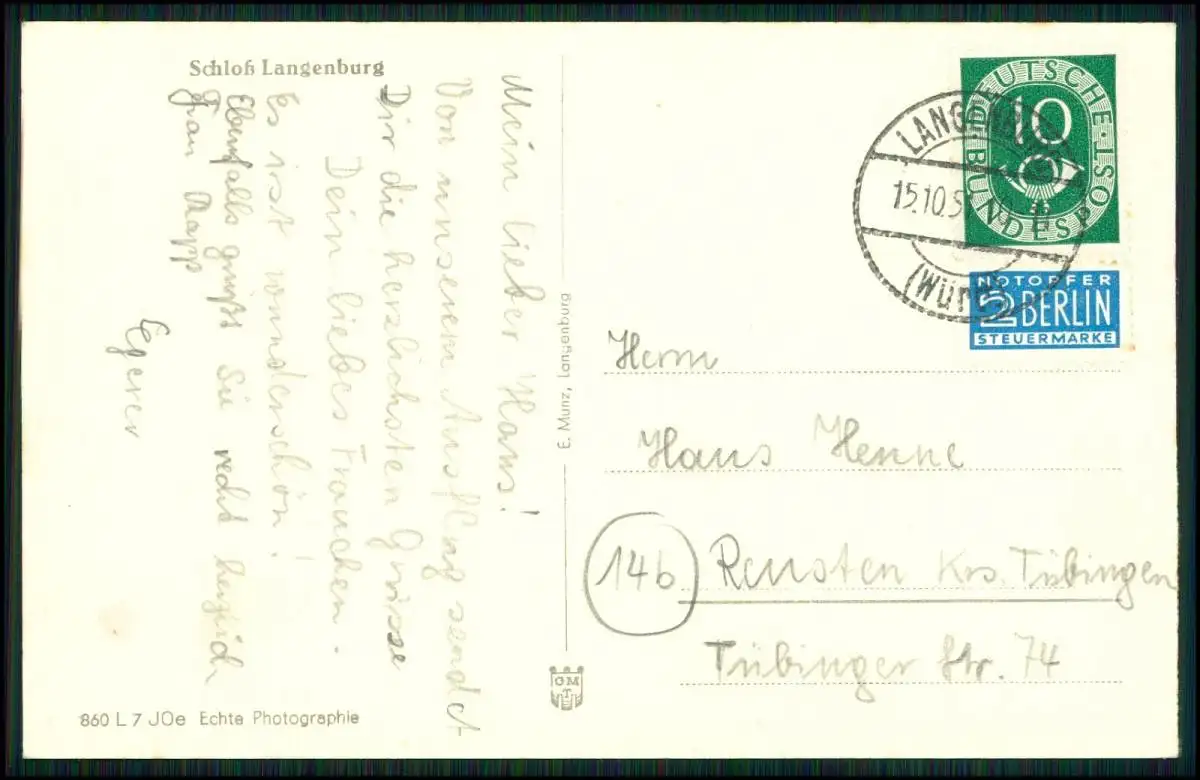 Schloß Langenburg
Mein lieber Hans!
Von unserem Ausflug sendet
Dir die herzlichsten Grüsse
Dein liebes Frauchen.
Es ist wunderschön!
Ebenfalls grüßt Sie recht herzlich
Frau Rapp
860 L 7 JOe Echte Photographie
E. Munz, Langenburg
GM
T
DEUTSCHE BUNDESPOST
10
LANGENBURG
15.10.5
(Württ)
NOTOPFER
2 BERLIN
STEUERMARKE
Herrn
Hans Henne
14b Reusten Krs. Tübingen
Tübinger Str. 74